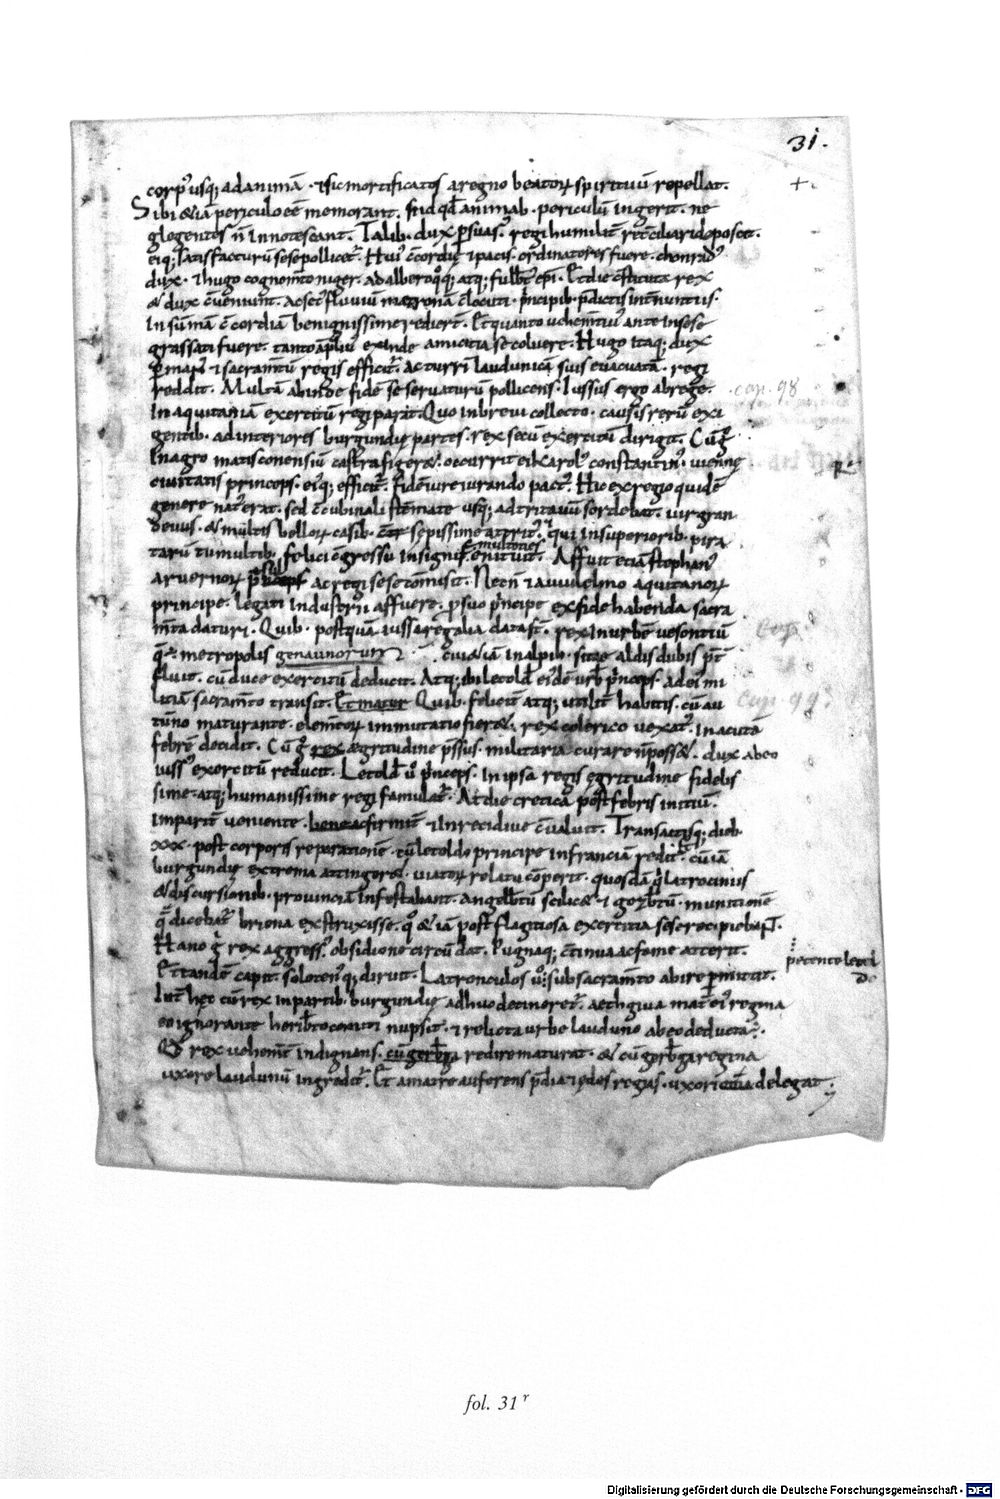 31.
corp⁹ usq; ad animā · & sic mortificatos a regno beatorꝝ spirituū repellat.
Sibi & iā periculo eē memorant. Si id qđ animab · periculū ingerit · ne
glegentes n̄ innotescant. Talib · dux psuas⁹ · regi humilit̄ recc̄iliari deposcit.
eiq; satisfacturū sese pollicet᷑. Hui⁹ c̄cordię & pacis · ordinatores fuere · chonrad⁹
dux · & hugo cognom̄to niger · adalbero q̨q; atq; fulb̄t⁹ epī · Et die c̄stituta rex
& dux c̄veniunt. Ac sec⁹ fluviū matronā c̄locuti · p̄ncipib · p̄dictis int̄nuntiis ·
In sūmā c̄cordiā benignissime redierт̄. Et quanto vehem̄tius ante in sese
grassati fuere · tanto āpli⁹ exinde amicitia se coluere · Hugo itaq; dux
p man⁹ & sacram̄tū regis efficit᷑ · ac turrī laudunicā suis evacuatā · regi
reddit. Multā abinde fidē se servaturū pollicens · Iussus ergo a rege ·
In aquitaniā exercitū regi parat. Quo in brevi collecto · causis rerū exi
gentib · ad interiores burgundię partes · rex secū exercitū dirigit. Cū g̊
In agro matisconensiū castra figer& · occurrit ei karol⁹ constantin⁹ · viennę
civitatis princeps · ei⁹q; efficit᷑ · fidē iure iurando pact⁹. Hic ex regio quidē
genere nat⁹ erat · sed c̄cubinali stēmate usq; ad tritavū sordebat · vir gran
devus · & multis bellorꝝ casib · sepissime atprit⁹ · qui in superiorib · pira
tarū tumultib · felici c̄gressu insignis multoties enituit. Affuit etiā stephan⁹
arvernorꝝ p̄sul ac regi sese cōmisit. Nec n̄ & a vvilelmo aquitanorꝝ
principe · legati industrii affuere · p suo p̄ncipe ex fide habenda sacra
m̄ta daturi · Quib · postquā · iussa regalia data st̄ · rex in urbē vesontiū
q̨ ÷ metropolis genaunorum · cui & iā in alpib · sitę aldis dubis p̄t
fluit · cū duce exercitū deducit. Atq; ibi letold⁹ ei⁹dē urb̄ p̄nceps · ad ei⁹ mi
litiā sacram̄to transit. Et mater Quib · felicit̄ atq; utilit̄ habitis · cū au
tūno maturante · elem̄torꝝ immutatio fier& · rex colerico vexat⁹ · in acutā
febrē decidit. Cū g̊ rex ægritudine p̄ssus · militaria curare n̄ poss& · dux ab eo
iuss⁹ exercitū reducit. Letold⁹ v̊ p̄nceps · in ipsa regis ęgritudine fidelis
sime · atq; humanissime regi famulat᷑. At die cretica post febris initiū ·
impariт̄ veniente · bene ac firmit̄ & in recidive c̄valuit. Transactisq; dieb ·
xxx · post corporis reparationē · cū letoldo principe in franciā redit · cū iā
burgundię extrema attinger& · viatorꝝ relatu cōperit · quosdā q̄ latrociniis
& discursionib · provinciā infestabant · angelb̄tū scilic& · & gozb̄tū · munitionē
q̨ dicebat᷑ briena exstruxisse · q̊ & iā post flagitiosa exercitia sese reciꝑiebant.
Hanc g̊ rex aggress⁹ · obsidione circūdat. Pugnaq; c̄tinua ac fame atterit.
petente letol
do
Et tandē capit · soloten⁹q; diruit. Latrunculos v̊ sub sacram̄to abire pmittit.
Int̄ hęc cū rex in partib · burgundię adhuc detineret᷑ · aethgiva mat̄ ei⁹ regina
eo ignorante heribto comiti nupsit · & relicta urbe lauduno ab eo deducta ÷.
Qđ rex vehem̄t̄ indignans · cū gerb̄ga redire maturat · & cū gerb̄ga regina
uxore laudunū ingredit᷑. Et a matre auferens p̄dia & ędes regias · uxori suę delegat.
fol. 31 r
Digitalisierung gefördert durch die Deutsche Forschungsgemeinschaft - DFG